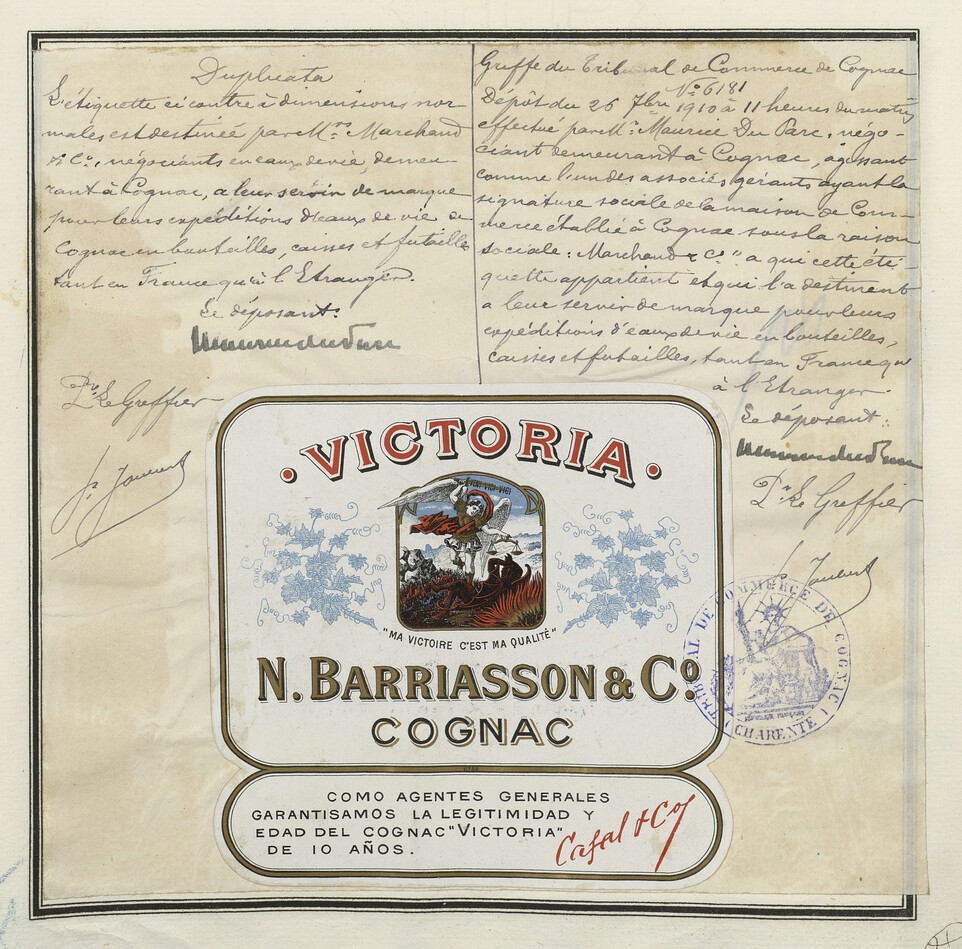 Duplicata
L'étiquette ci contre à dimensions nor-
males est destinée par M.rs Marchand
& Cº., négociants en eaux de vie, demeu-
rant à Cognac, a leur servir de marque
pour leurs expéditions d'eaux de vie de
Cognac en bouteilles, caisses et futailles
tant en France qu'à l'Etranger.
Le déposant:
Pr. Le Greffier
Greffe du Tribunal de Commerce de Cognac
Nº 6181
Dépôt du 26 7bre 1910 à 11 heures du matin
effectué par Mr. Maurice Du Parc, négo-
ciant demeurant à Cognac, agissant
comme l'un des associés gérants ayant la
signature sociale de la maison de Com-
merce établie à Cognac sous la raison
sociale: Marchand & Cº." a qui cette éti-
quette appartient et qui l'a destinent
a leur servir de marque pour leurs
expéditions d'eaux de vie en bouteilles,
caisses et futailles, tant en France qu'
à l'Etranger.
Le déposant:
Pr. Le Greffier
·VICTORIA·
VENI·VIDI·VICI
"MA VICTOIRE C'EST MA QUALITÉ"
N. BARRIASSON & Cº.
COGNAC
COMO AGENTES GENERALES
GARANTISAMOS LA LEGITIMIDAD Y
EDAD DEL COGNAC "VICTORIA"
DE 10 AÑOS.
Casal & Co
TRIBUNAL DE COMMERCE DE COGNAC
(CHARENTE)
RÉPUBLIQUE FRANÇAISE